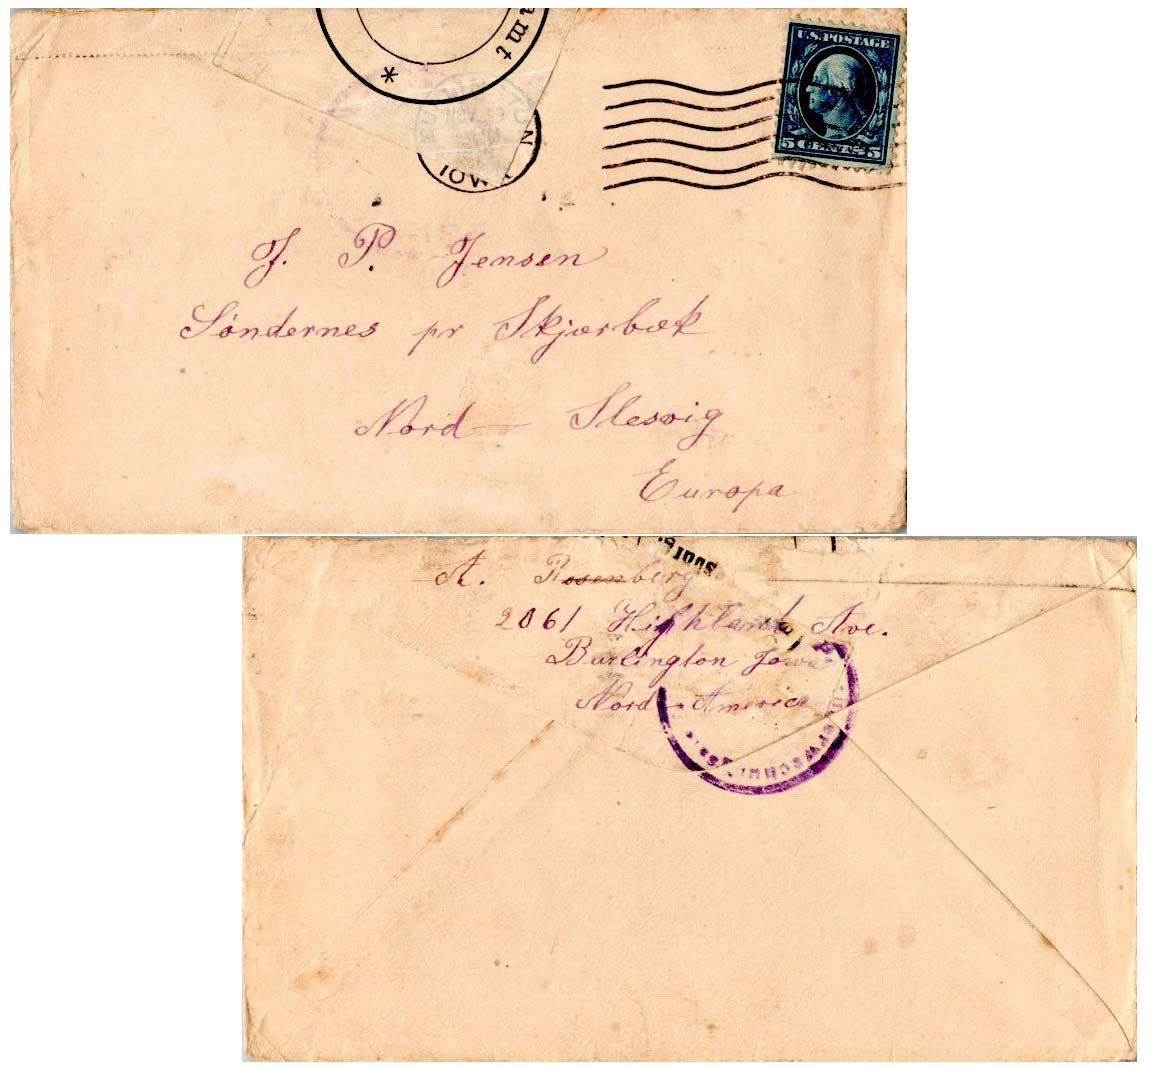 amt
*
U.S. POSTAGE
5 CENTS 5
N
IOWA
J. P. Jensen
Söndernes pr Skjærbæk
Nord - Slesvig
Europa
A. Rosenberg
2061 Highland Ave.
Burlington Iowa
Nord - America